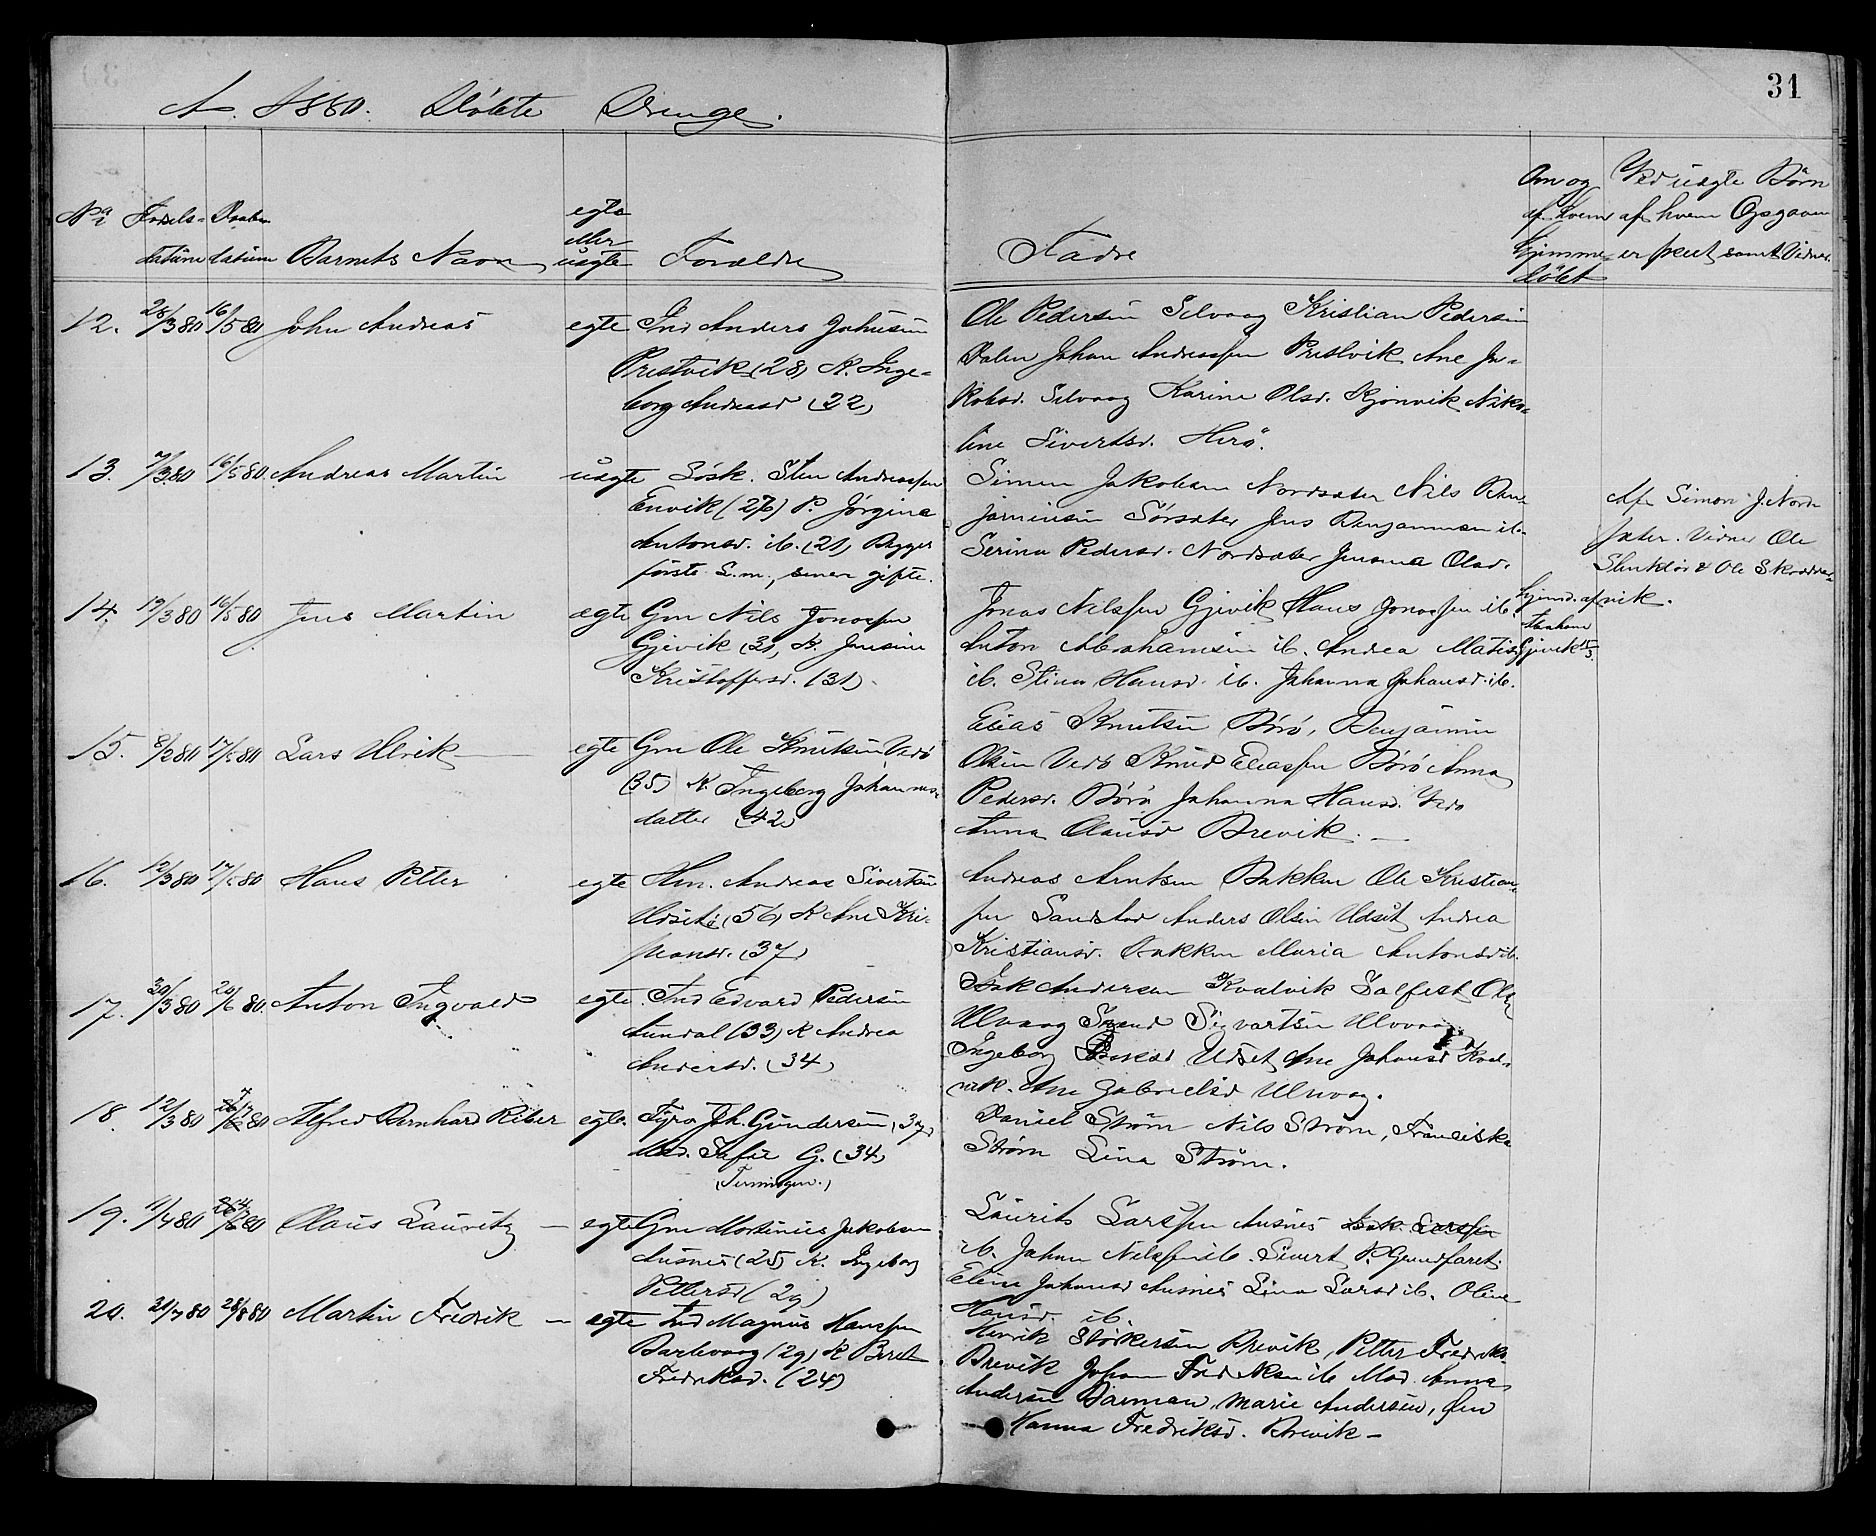 31
A. 1880. Döbte Drenge.
No Fødsels- datum
Daabs datum
Barnets Navn
egte eller uægte
Forældre
Fadre
Om og af hvem hjemme- döbt
Ved uægte Börn af hvem Opgaven er skeet samt Vidner.
12. 28/3 80 16/5 80 John Andreas egte Ind Anders Johnsen
Prestvik (28) K. Inge-
borg Andreasd (22)
Ole Pedersen Selvaag Kristian Pedersen
Dalen Johan Andreassen Prestvik Ane Ja-
kobsd. Selvaag Karine Olsd. Kjönvik Niko-
line Sivertsd. Herö.
13. 7/3 80 16/5 80 Andreas Martin uægte Løsk. Sten Andreassen
Envik (26) P. Jörgine
Antonsd. ib. (21) Begges
förste L.m., senere gifte.
Simen Jakobsen Nordsæter Nils Ben-
jaminsen Sörsæter Jens Benjaminsen ib.
Serina Pedersd. Nordsæter Jensine Olsd.
Af Simon J. Nord-
sæter. Vidner Ole
Slenklör & Ole Skredder-
vik.
14. 13/3 80 16/5 80 Jens Martin ægte Gm Nils Jonassen
Gjevik (31) K. Jensine
Kristoffersd. (31).
Jonas Nilssen Gjevik Hans Jonassen ib.
Anton Abrahamsen ib. Andrea Matisd
ib. Stina Hansd. ib. Johanna Johansd. ib.
Hjemd. af
Abraham
Gjevik 15/3
15. 8/2 80 17/5 80 Lars Ulrik egte Gm Ole Knutsen Vedö
(35) K. Ingeborg Johannes-
datter (42)
Elias Knutsen Börö, Benjamin
Olsen Vedö Knud Eliassen Börö Anna
Pedersd. Börö Johanna Hansd. Vedö
Anna Olausd Brevik.
16. 12/3 80 17/5 80 Hans Petter egte Hm. Andreas Sivertsen
Udset (56) K Ane Kri-
stiansd. (37)
Andreas Arntsen Bakken Ole Kristian-
sen Sandstad Anders Olsen Udset Andrea
Kristiansd. Bakken Maria Antonsd ib.
17. 30/3 80 20/6 80. Anton Ingvald egte. Ind Edvard Pedersen
Aundal (33) K Andrea
Andersd. (34)
Isak Andersen Kvalvik Salfest Ols
Ulvaag Svend Sivartsen Ulvaag
Ingeborg Udset Ane Johansd Kval-
vik. Ane Gabrielsd Ulvaag.
18. 12/3 80 Alfred Bernhard Riber egte. Fyrv. Joh. Gundersen (37)
Mad. Sofie G. (34)
(Terningen.)
Daniel Ström Nils Ström, Franciska
Ström Lina Ström.
19. 11/4 80 Olaus Lauritz egte Gm Martinus Jakobsen
Ausnes (25) K. Ingeborg
Pettersd (29)
Laurits Larssen Ausnes Isak Larssen
ib. Johan Nilssen ib. Sivert P. Grundfaret.
Eline Johansd Ausnes Lina Larsd ib. Oline
Hansd. ib.
20. 31/7 80 28/8 80 Martin Fredrik egte Ind Magnus Hanssen
Barbvaag (29) K Beret
Fredriksd. (24)
Henrik Störkersen Brevik, Petter Fredriks.
Brevik Johan Fredriksen ib Mad. Anna
Andersen Barman, Marie Andersen,
Hanna Fredriksd. Brevik